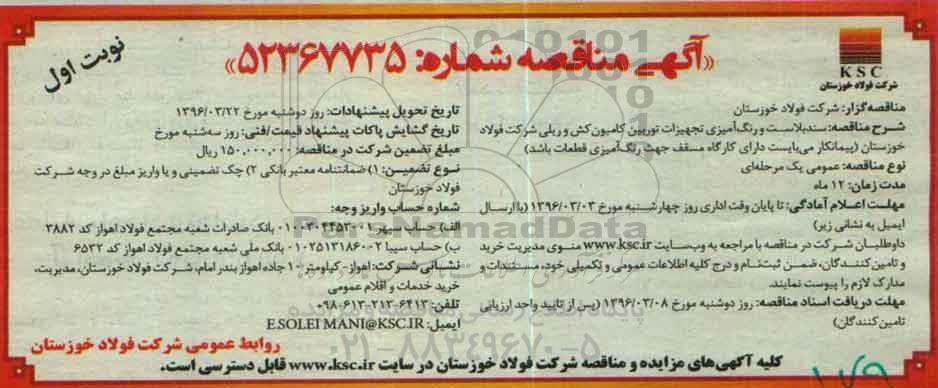 نوبت اول
«آگهی مناقصه شماره: ۵۲۳۶۷۷۳۵»
KSC
شرکت فولاد خوزستان
مناقصه‌گزار: شرکت فولاد خوزستان
شرح مناقصه: سندبلاست و رنگ‌آمیزی تجهیزات توربین کامیون‌کش و ریلی شرکت فولاد
خوزستان (پیمانکار می‌بایست دارای کارگاه مسقف جهت رنگ‌آمیزی قطعات باشد)
نوع مناقصه: عمومی یک مرحله‌ای
مدت زمان: ۱۲ ماه
مهلت اعلام آمادگی: تا پایان وقت اداری روز چهارشنبه مورخ ۱۳۹۶/۰۳/۰۳ (با ارسال
ایمیل به نشانی زیر)
داوطلبان شرکت در مناقصه با مراجعه به وب‌سایت www.ksc.ir منوی مدیریت خرید
و تامین کنندگان، ضمن ثبت‌نام و درج کلیه اطلاعات عمومی و تکمیلی خود، مستندات و
مدارک لازم را پیوست نمایند.
مهلت دریافت اسناد مناقصه: روز دوشنبه مورخ ۱۳۹۶/۰۳/۰۸ (پس از تایید واحد ارزیابی
تامین کنندگان)
تاریخ تحویل پیشنهادات: روز دوشنبه مورخ ۱۳۹۶/۰۳/۲۲
تاریخ گشایش پاکات پیشنهاد قیمت/فنی: روز سه‌شنبه مورخ
مبلغ تضمین شرکت در مناقصه: ۱۵۰,۰۰۰,۰۰۰ ریال
نوع تضمین: ۱) ضمانتنامه معتبر بانکی ۲) چک تضمینی و یا واریز مبلغ در وجه شرکت
فولاد خوزستان
شماره حساب واریز وجه:
الف) حساب سپهر ۰۱۰۰۳۰۴۴۵۳۰۰۱ بانک صادرات شعبه مجتمع فولاد اهواز کد ۳۸۸۲
ب) حساب سیبا ۰۱۰۲۵۱۳۱۸۶۰۰۲ بانک ملی شعبه مجتمع فولاد اهواز کد ۶۵۳۲
نشانی شرکت: اهواز- کیلومتر ۱۰ جاده اهواز بندر امام، شرکت فولاد خوزستان، مدیریت،
خرید خدمات و اقلام عمومی
تلفن: ۶۴۱۳-۲۱۳-۶۱۳-۰۹۸
ایمیل: E.SOLEIMANI@KSC.IR
روابط عمومی شرکت فولاد خوزستان
کلیه آگهی‌های مزایده و مناقصه شرکت فولاد خوزستان در سایت www.ksc.ir قابل دسترسی است.
ParsNamadData
۰۲۱-۸۸۳۴۹۶۷۰-۵